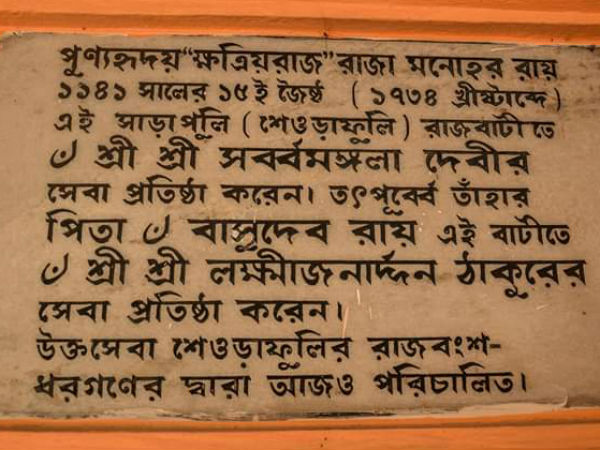 পুণ্যহৃদয় "ক্ষত্রিয়রাজ" রাজা মনোহর রায়
১১৪১ সালের ১৫ই জৈষ্ঠ (১৭৩৪ খ্রীষ্টাব্দে)
এই সাড়াপুলি (শেওড়াফুলি) রাজবাটীতে
ঁ শ্রী শ্রী সর্ব্বমঙ্গলা দেবীর
সেবা প্রতিষ্ঠা করেন। তৎপূর্ব্বে তাঁহার
পিতা ঁ বাসুদেব রায় এই বাটীতে
ঁ শ্রী শ্রী লক্ষ্মীজনার্দ্দন ঠাকুরের
সেবা প্রতিষ্ঠা করেন।
উক্তসেবা শেওড়াফুলির রাজবংশ-
ধরগণের দ্বারা আজও পরিচালিত।